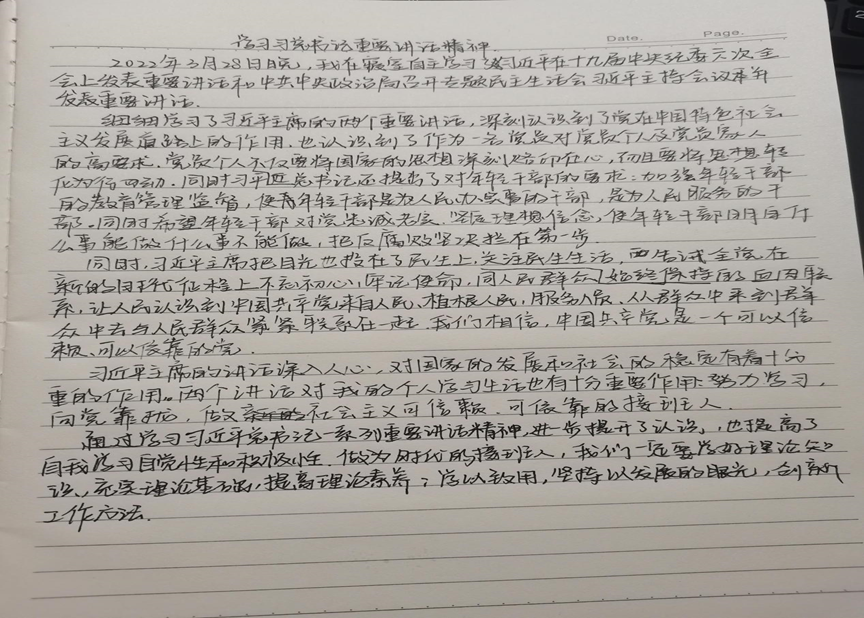 学习习总书记重要讲话精神.
Date. Page.
2022年3月28日晚,我在寝室自主学习了习近平在十九届中央纪委六次全
会上发表重要讲话和中共中央政治局召开专题民主生活会习近平主持会议并
发表重要讲话.
细细学习了习近平主席的两个重要讲话,深刻认识到了党在中国特色社会
主义发展道路上的作用.也认识到了作为一名党员对党员个人及党员家人
的高要求.党员个人不仅要将国家的思想深刻烙印在心,而且要将思想转
化为行动.同时习近平总书记还提出了对年轻干部的要求:加强年轻干部
的教育管理监督,使青年轻干部是为人民办实事的干部,是为人民服务的干
部.同时希望年轻干部对党忠诚老实.坚定理想信念,使年轻干部明白什
么事能做什么事不能做,把反腐败坚决拦在第一步.
同时,习近平主席把目光也投在了民生上.关注民生生活,要告诫全党在
新的时代征程上不忘初心,牢记使命,同人民群众始终保持的血肉联
系,让人民认识到中国共产党来自人民、植根人民,服务人民.从群众中来到群
众中去与人民群众紧紧联系在一起.我们相信,中国共产党是一个可以信
赖、可以依靠的党.
习近平主席的讲话深入人心,对国家的发展和社会的稳定有着十分
重的作用.两个讲话对我的个人学习生活也有十分重要作用.努力学习,
向党靠拢,做社会主义可信赖.可依靠的接班人.
通过学习习近平总书记一系列重要讲话精神,进一步提升了认识,也提高了
自我学习自觉性和积极性.做为时代的接班人,我们一定要学好理论知
识、充实理论基础,提高理论素养;学以致用,坚持以发展的眼光,创新
工作方法.